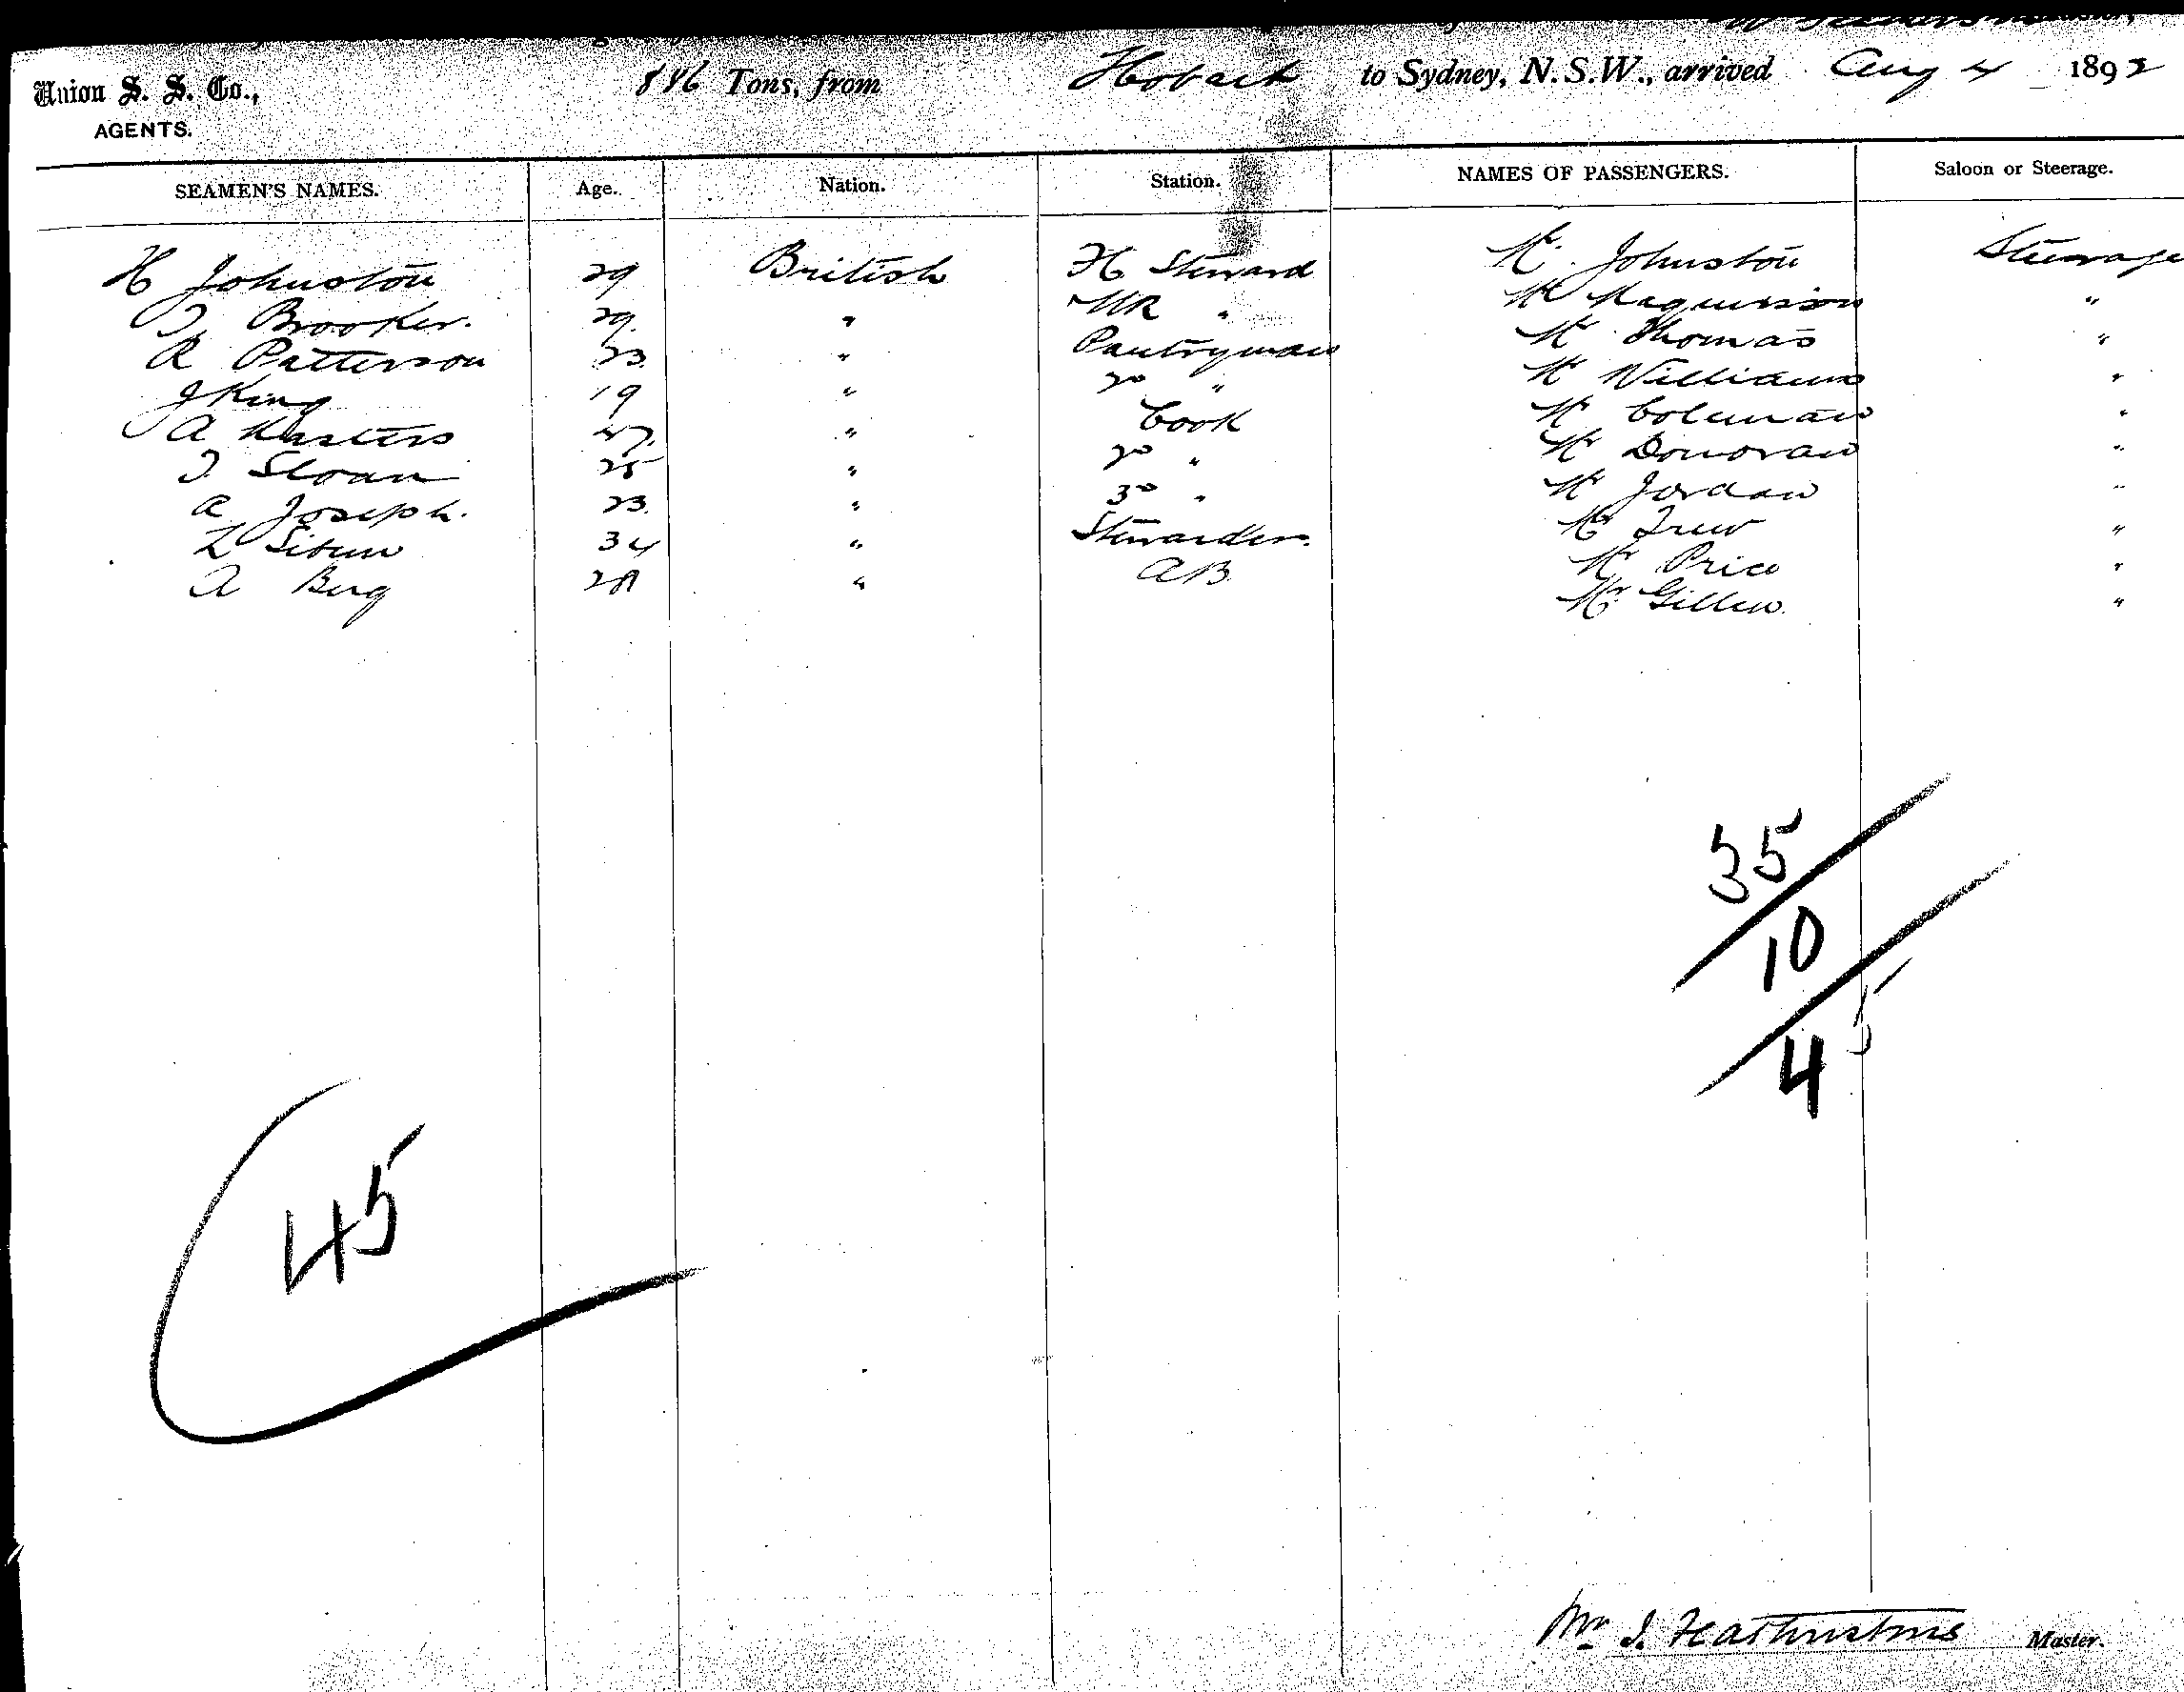 Union S. S. Co., 886 Tons, from Hobart to Sydney, N.S.W., arrived Aug 4 1892
AGENTS.
SEAMEN'S NAMES. Age. Nation. Station. NAMES OF PASSENGERS. Saloon or Steerage.
H Johnston 29 British H Steward Mr Johnston Steerage
T Brooker. 29. " " Mr Magnusson "
R Patterson 23. " Pantryman Mr Thomas "
J King 19 " 2nd " Mr Williams "
A Masters 47. " Cook Mr Coleman "
T. Sloan 25 " 2nd " Mr Donovan "
A Joseph. 23. " 3rd " Mr Jordan "
L " Stewardess. Mr Trew "
34
A Berg 28 " AB. Mr Price "
Mr Gillen. "
35
10
45
45
Wm J. Master.